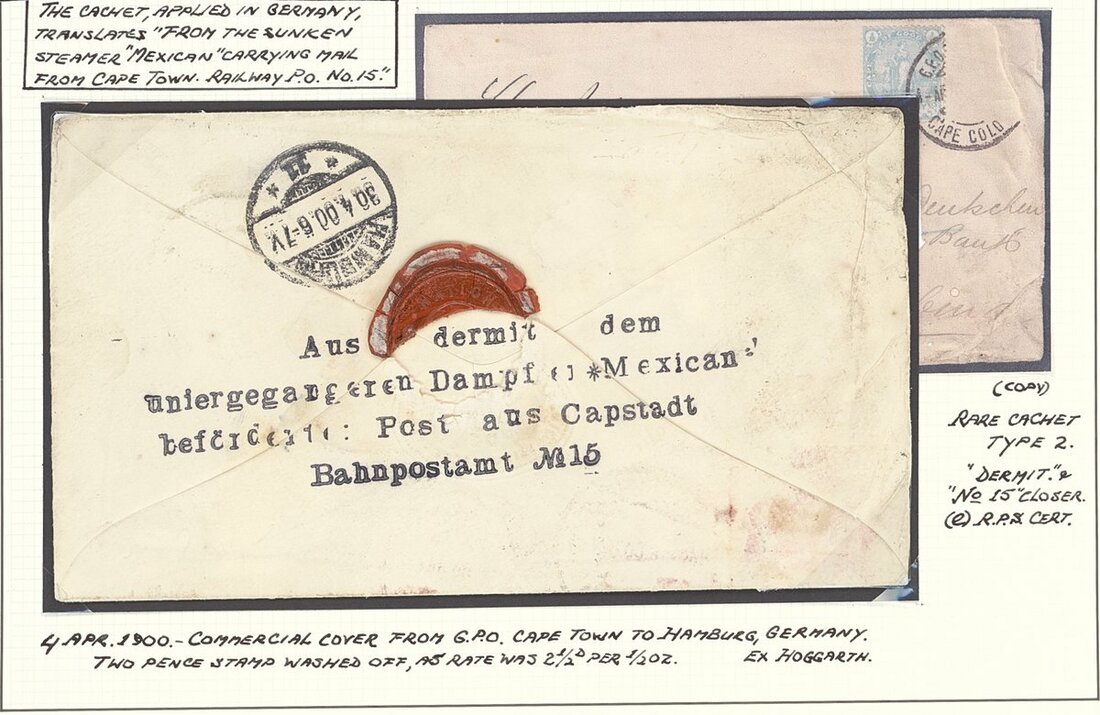 THE CACHET, APPLIED IN GERMANY,
TRANSLATES "FROM THE SUNKEN
STEAMER "MEXICAN" CARRYING MAIL
FROM CAPE TOWN. RAILWAY P.O. NO.15."
CAPE COLO
Deutschen
Bank
11
30.4.00.6-7V
HAMBURG
Aus dermit dem
uniergegangeren Dampfer *Mexican"
beförderte: Post aus Capstadt
Bahnpostamt №15
(COPY)
RARE CACHET
TYPE 2.
"DERMIT." &
"No 15" CLOSER.
(e) R.P.S. CERT.
4 APR. 1900.- COMMERCIAL COVER FROM G.P.O. CAPE TOWN TO HAMBURG, GERMANY.
TWO PENCE STAMP WASHED OFF, AS RATE WAS 2½D PER ½OZ. EX HOGGARTH.